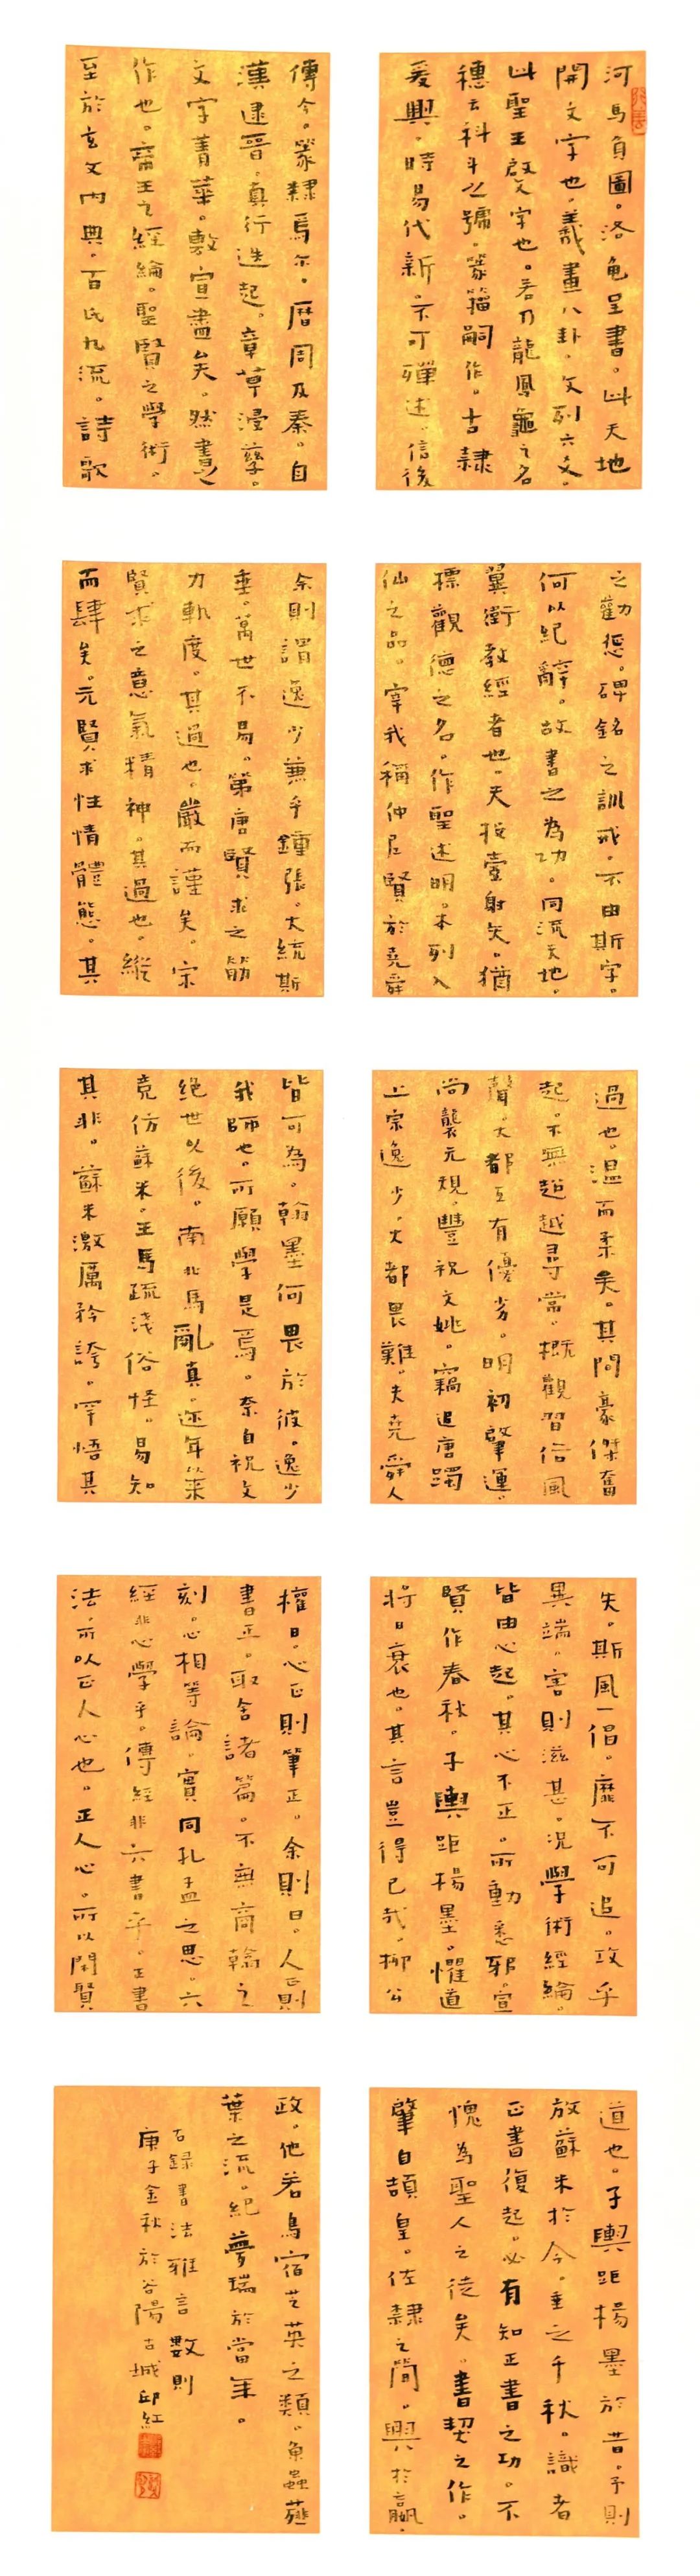 河馬負圖。洛龜呈書。此天地
開文字也。羲畫八卦。文列六爻。
此聖王啟文字也。若乃龍鳳龜之名
穗云科斗之號。篆籀嗣作。古隸
爰興。時易代新。不可殫述。信後
傳今。篆隸焉尔。曆周及秦。自
漢逮晉。真行迭起。章草浸孳。
文字菁華。敷宣盡矣。然書之
作也。帝王之經綸。聖賢之學術。
至於玄文內典。百氏九流。詩歌
之勸懲。碑銘之訓戒。不由斯字。
何以紀辭。故書之為功。同流天地。
翼衛教經者也。夫投壺射矢。猶
標觀德之名。作聖述明。本列入
仙之品。宰我稱仲尼賢於堯舜
余則謂逸少兼乎鍾張。大統斯
垂。萬世不易。第唐賢求之筋
力軌度。其過也。嚴而謹矣。宋
賢求之意氣精神。其過也。縱
而肆矣。元賢求性情體態。其
過也。溫而柔矣。其間豪傑奮
起。不無超越尋常。概觀習俗風
聲。大都互有優劣。明初肇運。
尚襲元規。豐祝文姚。竊追唐躅
上宗逸少。大都畏難。夫堯舜人
皆可為。翰墨何畏於彼。逸少
我師也。所願學是焉。奈自祝文
絕世以後。南北馬亂真。迩年以來
竟仿蘇米。王馬疏淺俗怪。易知
其非。蘇米激厲矜誇。罕悟其
失。斯風一倡。靡不可追。攻乎
異端。害則滋甚。況學術經綸。
皆由心起。其心不正。所動悉邪。宣
聖作春秋。子輿距楊墨。懼道
將日衰也。其言豈得已哉。柳公
權曰。心正則筆正。余則曰。人正則
書正。取舍諸篇。不無商翰之
刻。心相等論。實同孔孟之思。六
經非心學乎。傳經非六書乎。正書
法。所以正人心也。正人心。所以閑賢
道也。子輿距楊墨於昔。予則
放蘇米於今。垂之千秋。識者
正書復起。必有知正書之功。不
愧為聖人之徒矣。書契之作。
肇自頡皇。佐隸之簡。興於嬴
政。他若鳥宿芝英之類。魚蟲薤
葉之流。紀夢瑞於當年。
右録書法雅言數則
庚子金秋於谷陽古城邱紅